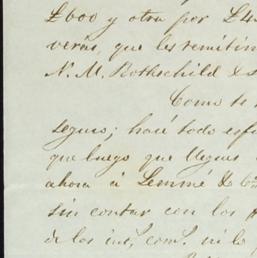 £600 y otra por £4
verás, que les remitim
N. M. Rothschild & S
Como te
seguro; hacé todo esfu
que luego que llegues
ahora á Lemmé & Co
sin contar con los
de los int.s com.s ni lo